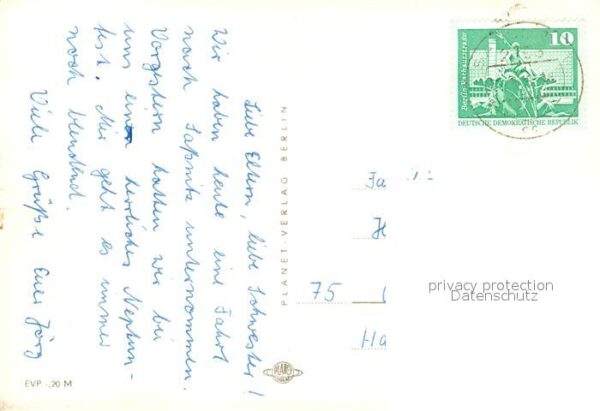 Liebe Eltern, liebe Schwester!
Wir haben heute eine Fahrt
nach Saßnitz unternommen.
Vorgestern hatten wir bei
uns ein herrliches Neptun-
fest. Mir geht es immer
noch blendend.
Viele Grüße Euer Jörg
EVP -,20 M
PLANET-VERLAG BERLIN
PLANET
Berlin-Rathausstraße
10
DEUTSCHE DEMOKRATISCHE REPUBLIK
Fa
75
Ha
privacy protection
Datenschutz